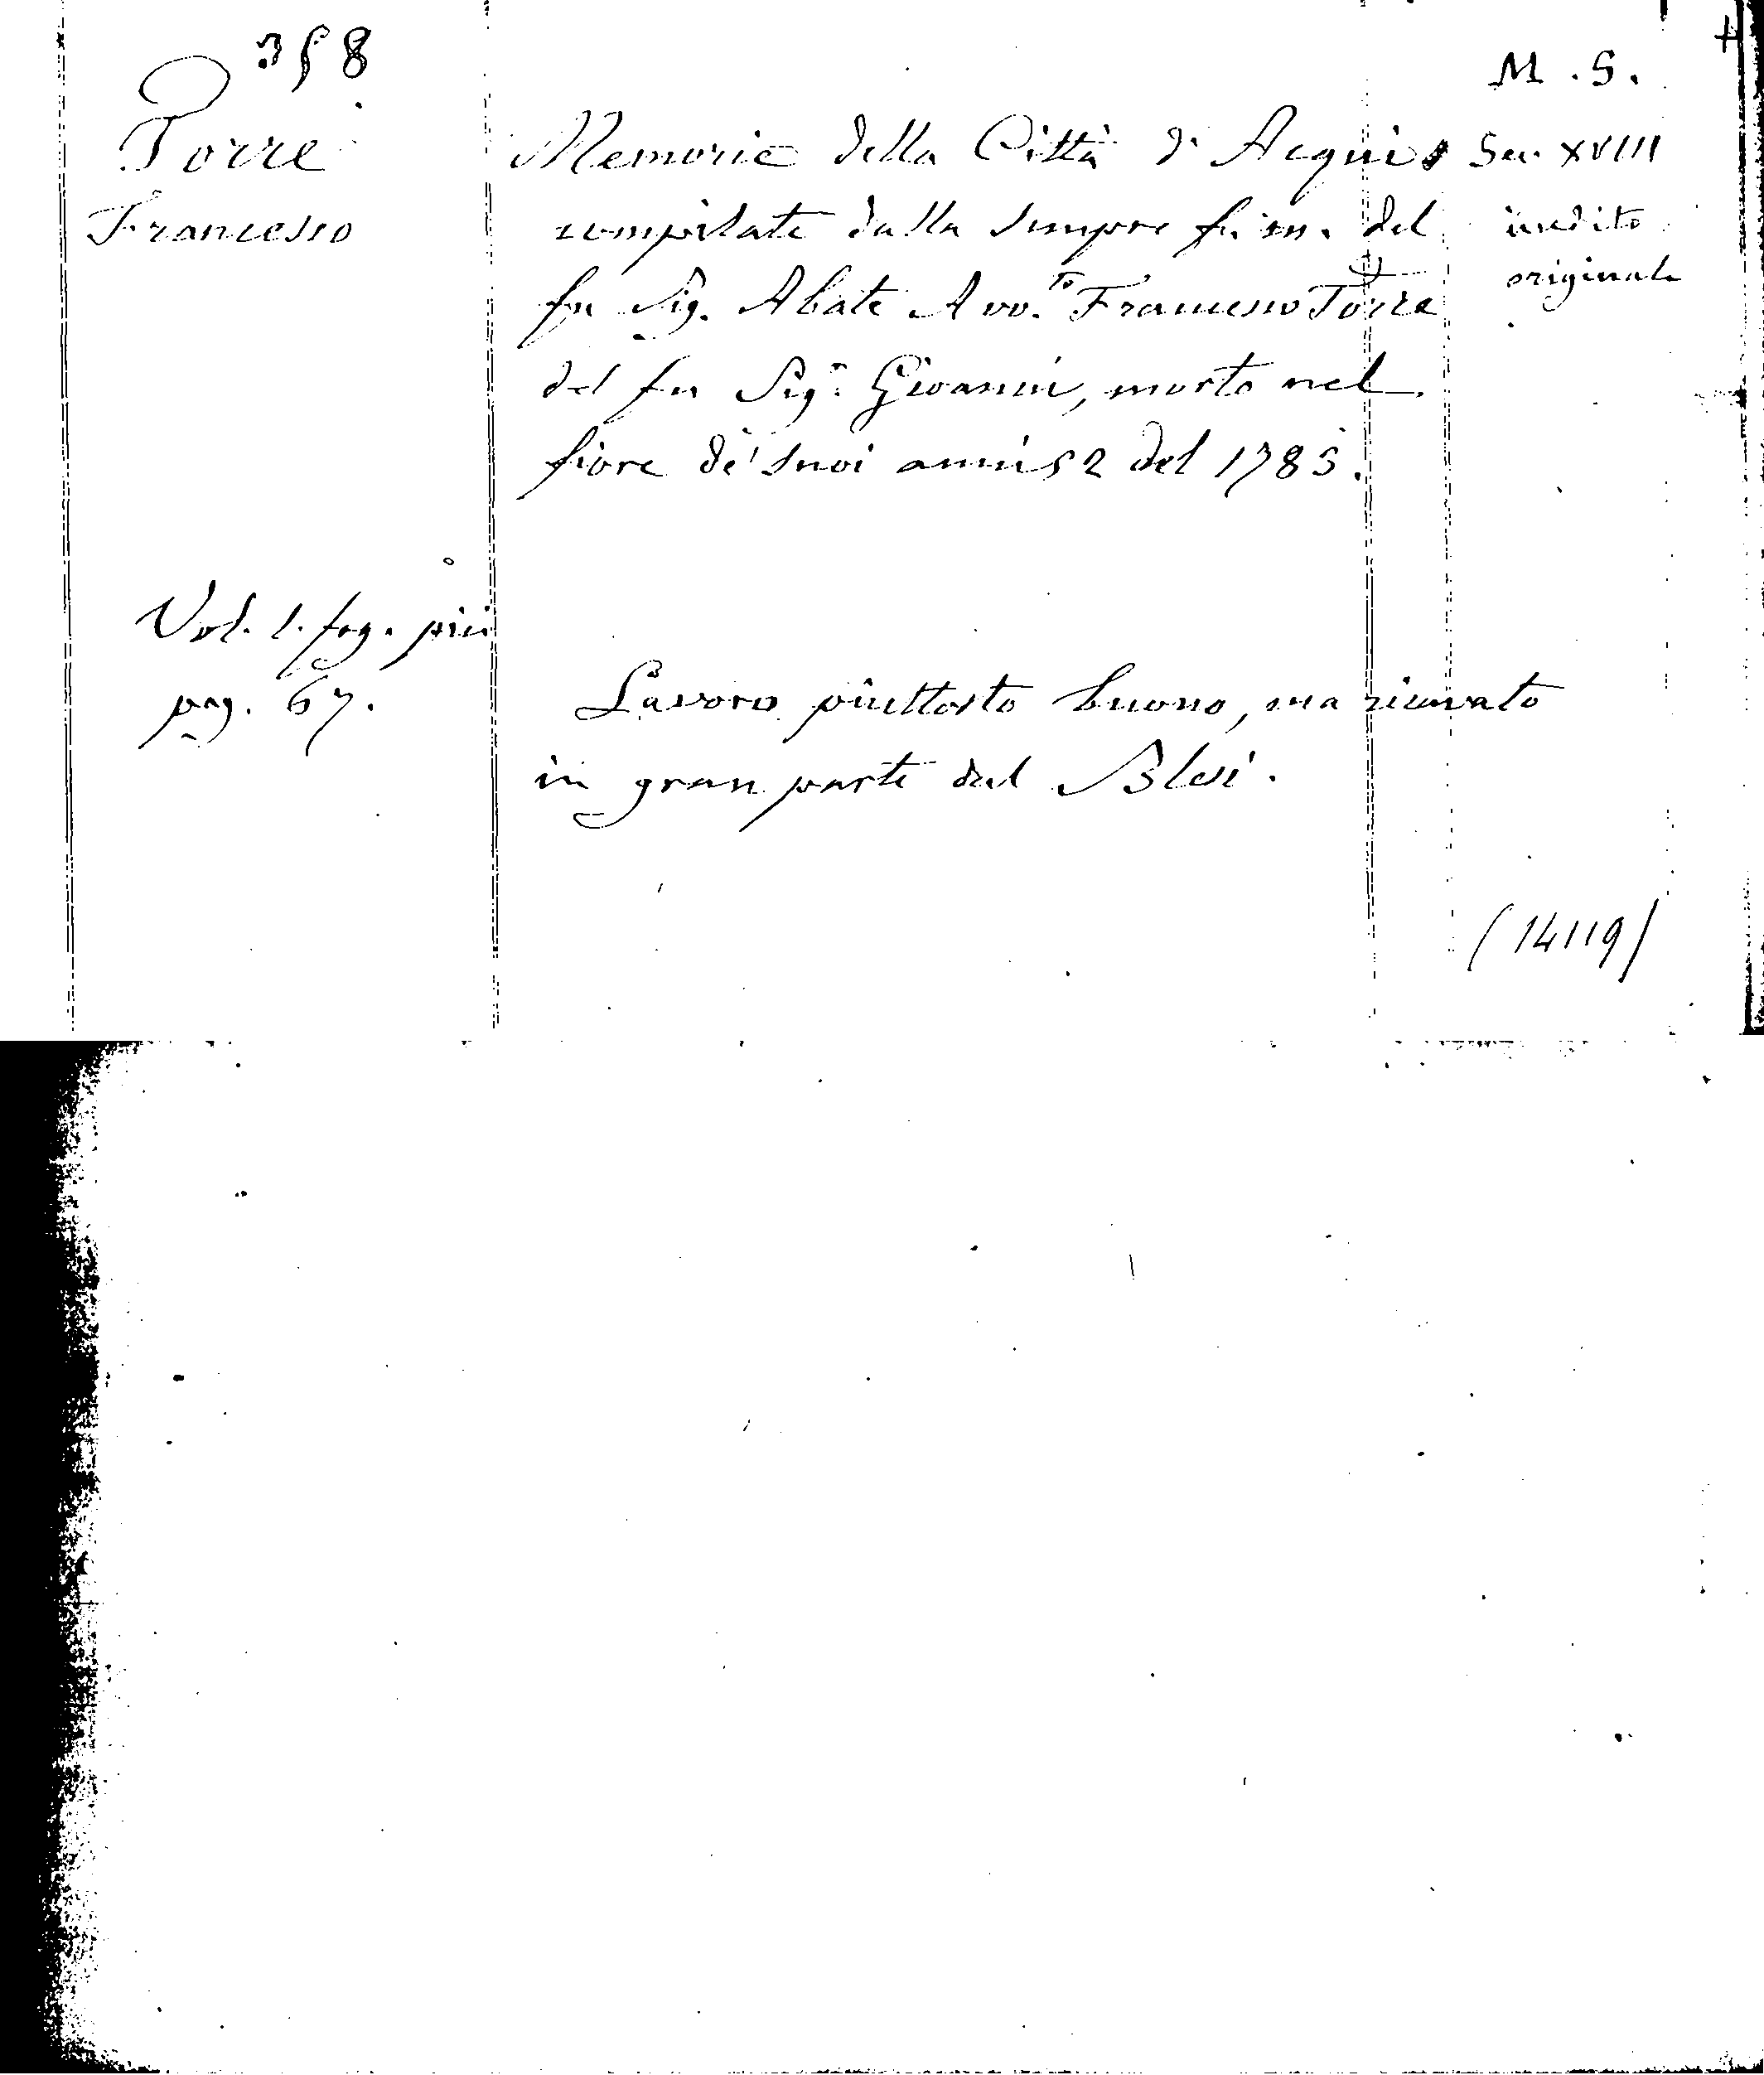 358
Torre
Francesco
M. S.
Memorie della Città di Acqui
Sec. XVIII
compilate dalla sempre fu: m. del
inedito
fu Sig. Abate Avv.to Francesco Torre
originale
del fu Sig.r Giovanni, morto nel
fiore de' suoi anni 52 del 1785.
Vol. 1. fog. più
pag. 67.
Lavoro piuttosto buono, ma ricavato
in gran parte dal Blesi.
(14119)